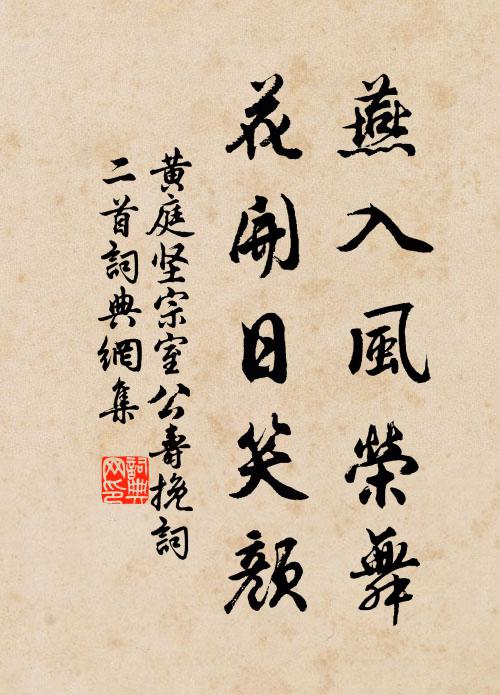 燕入風榮舞
花開日笑顏
黃庭坚宗室公壽挽詞
二首詞典網集
詞典
网印